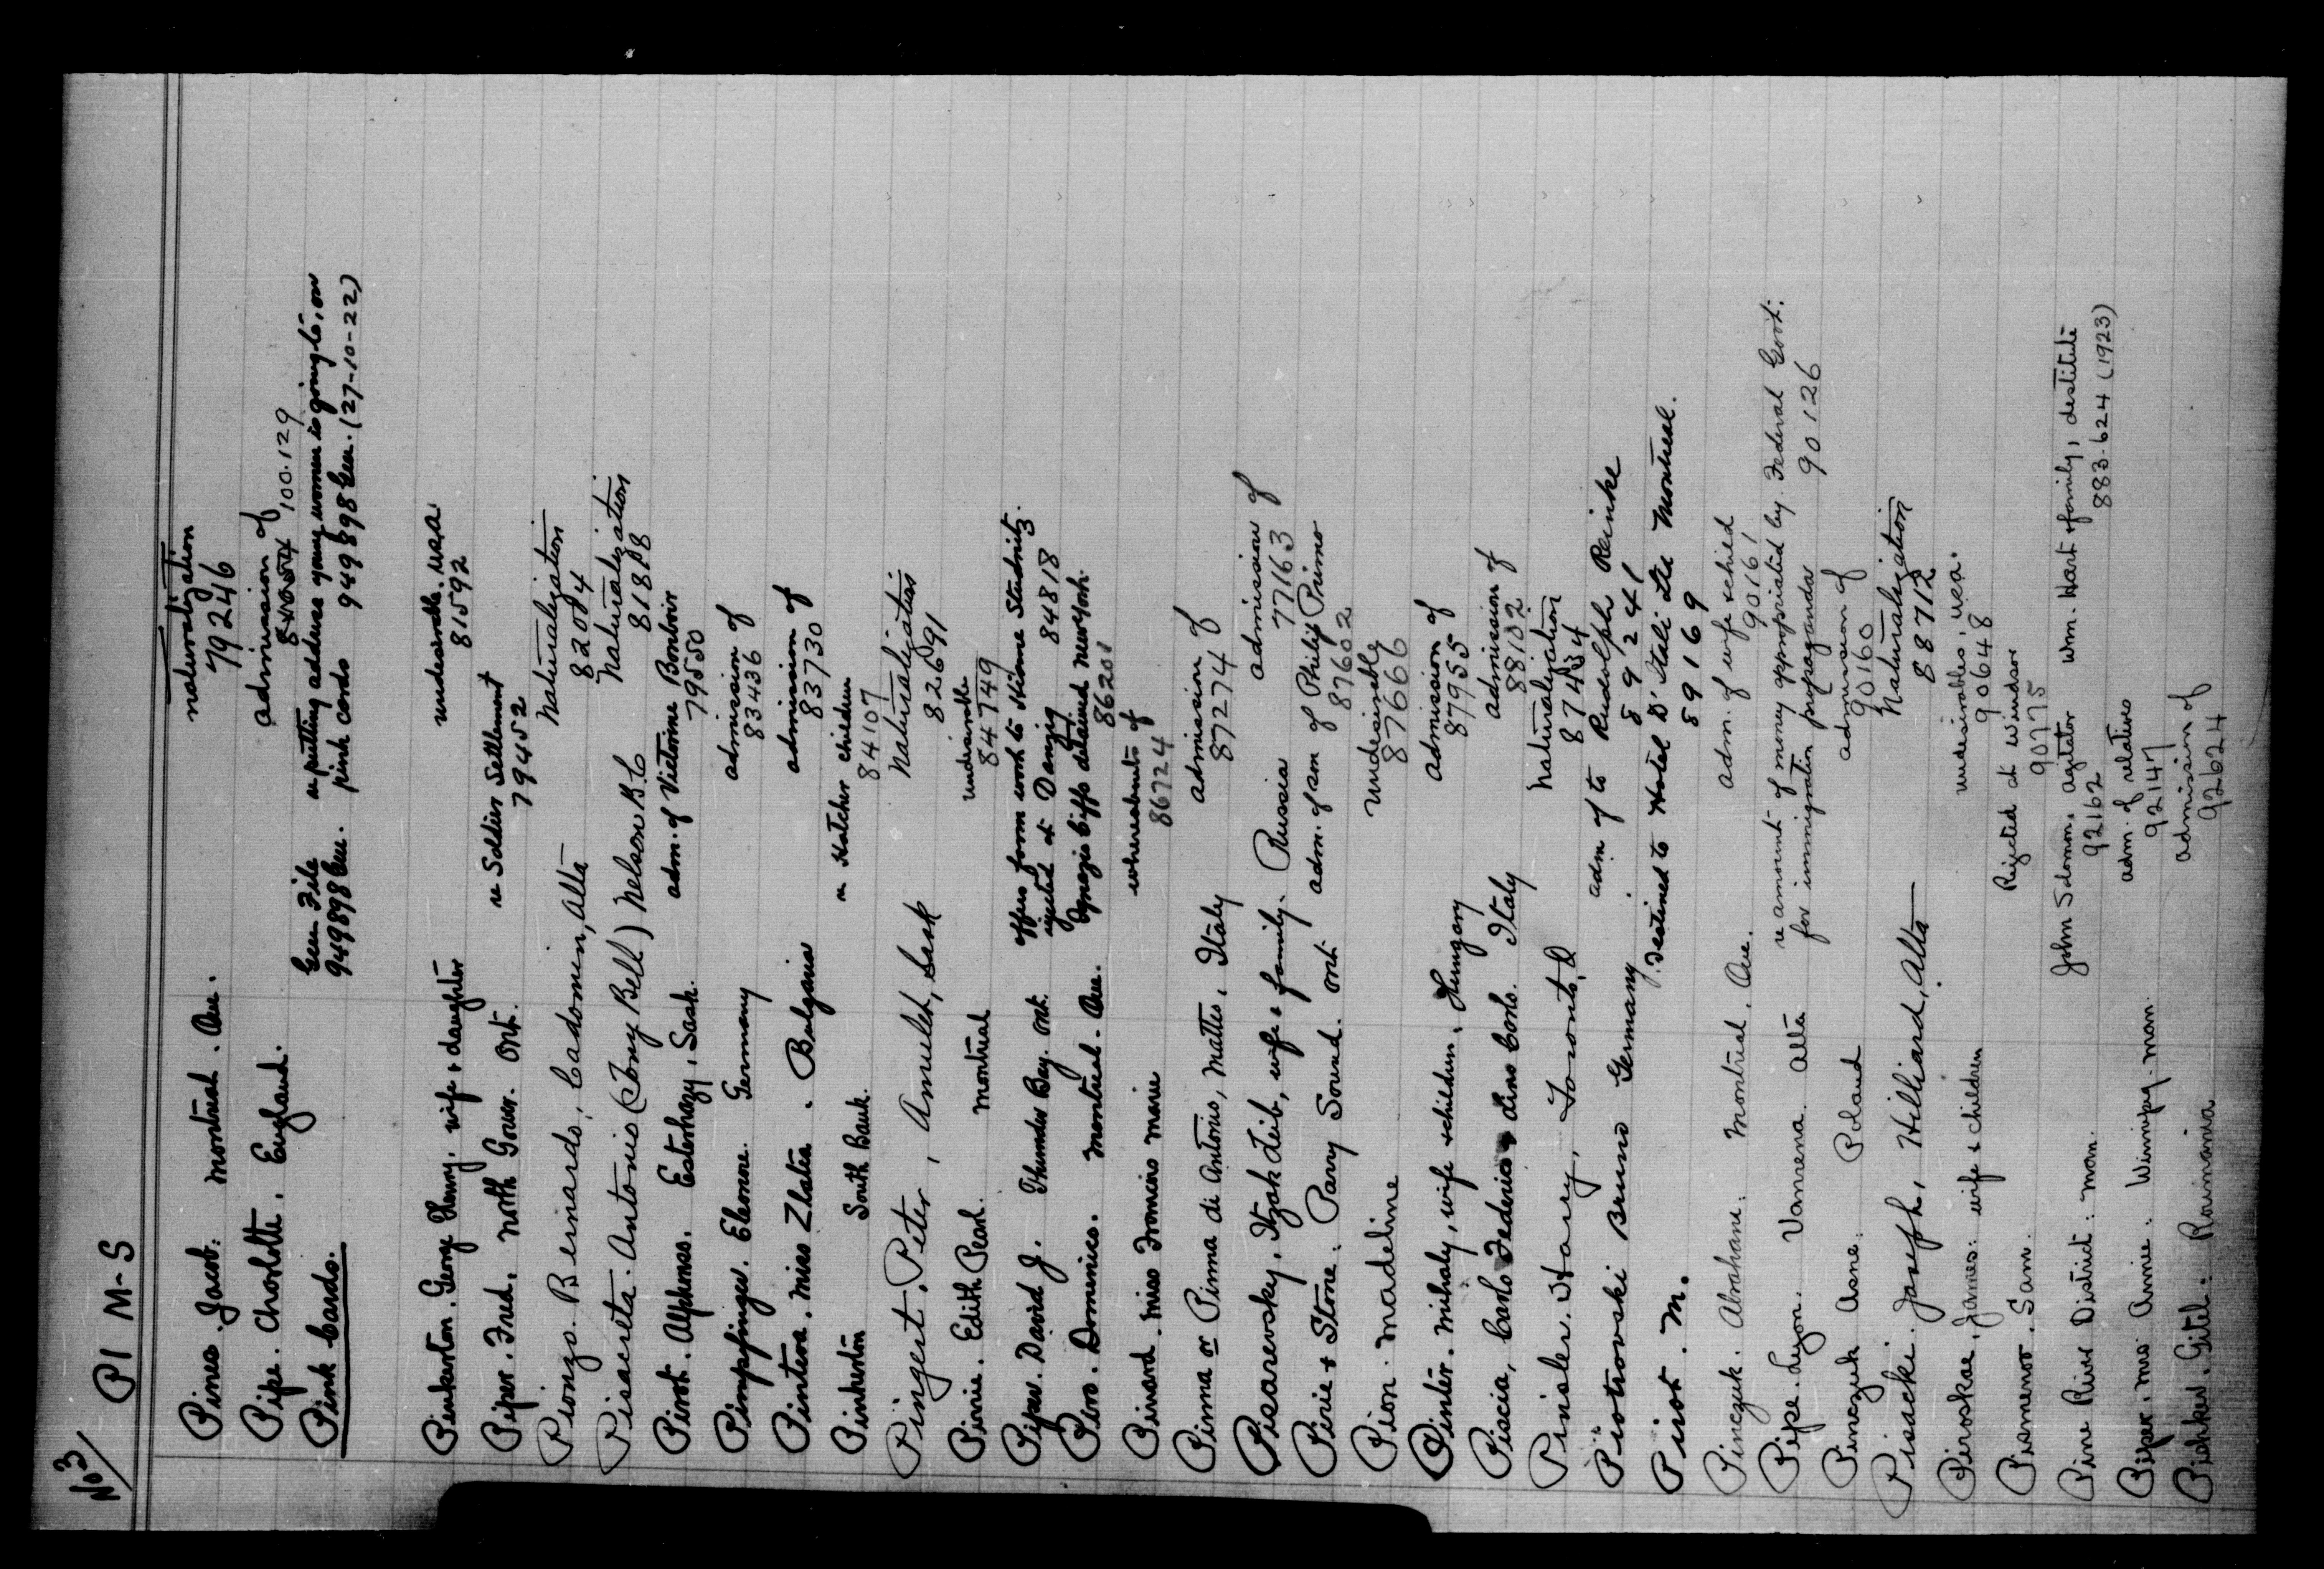 No 3/ PI M-S
Pines. Jacob. Montreal. Que. naturalization
79246
Pipe. Charlotte. England. admission of
100.129
Pink Cards. Gen. File re putting address young women is going to, on
949898 Gen. pink cards 949898 Gen. (27-10-22)
Pinkerton. George Henry, wife & daughter undesirable. USA
81592
Piper. Fred. North Gower. Ont. re Soldier Settlement
79452
Pionzo. Beinardo. Cadomin, Alta Naturalization
82004
Pisacreta. Antonio (Tony Bell) Nelson B.C Naturalization
81818
Pirot. Alphonse. Esterhazy, Sask. adm. of Victorine Bonboir
79550
Pimpfinger. Eleonore. Germany admission of
83436
Pintera. Miss Zlatia. Bulgaria admission of
83730
Pinkerton South Bank. re Hatcher children
84107
Pingert. Peter, Amulet, Sask Naturalization
82691
Pirrie. Edith Pearl. Montreal undesirable
84749
Piper. David J. Thunder Bay. Ont. offers farm work to Studnitz
rejected at Danzig 84818
Piro. Domenico. Montreal. Que. Ignazio Ciffo detained New York.
86201
Pirrard. Miss Francois Marie whereabouts of
86724
Pinna or Pinna di Antonio, Matteo, Italy admission of
87274
Pisarevsky. Itzak Leib, wife & family. Russia admission of
77163
Pirie & Stone. Parry Sound. Ont adm. of am of Philip Primo
87602
Pion. Madeline undesirable
87666
Pinter. Mihaly, wife & children. Hungary admission of
87955
Piscia, Carlo Federico Lino Carlo. Italy admission of
88102
Pinsler. Harry, Toronto, O Naturalization
87434
Piotrowski Bruno Germany adm of to Rudolph Reinke
89241
Picot. M. destined to Hotel D'Itali Ltee Montreal.
89169
Pinczuk. Abraham. Montreal. Que. adm. of wife & child
90161
Pipe. Lyon. Vanrena. Alta re amount of money appropriated by Federal Govt:
for immigration propaganda 90126
Pinczuk Asne. Poland admission of
90160
Pisacki. Joseph, Hilliard, Alta Naturalization
88712
Piroskae. James. wife & children undesirables, USA.
90648
Pismenor. Sam. Rejected at Windsor
90775
Pine River District. Man. John Sdoman, agitator Wm. Hart & family, destitute
92162 883.624 (1923)
Piper. Mrs Annie. Winnipeg. Man. adm. of relatives
92147
Pisker. Gitel. Roumania admission of
92624